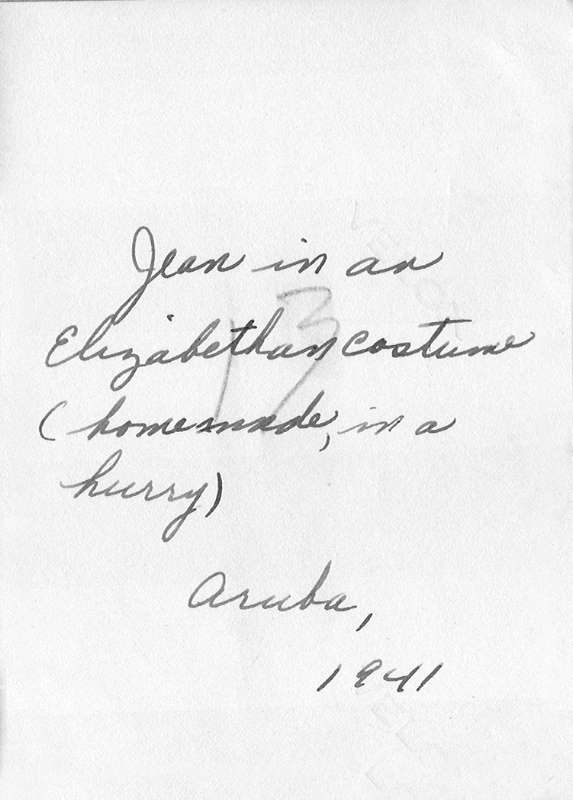 Jean in an
13
Elizabethan costume
(homemade, in a
hurry)
Aruba,
1941